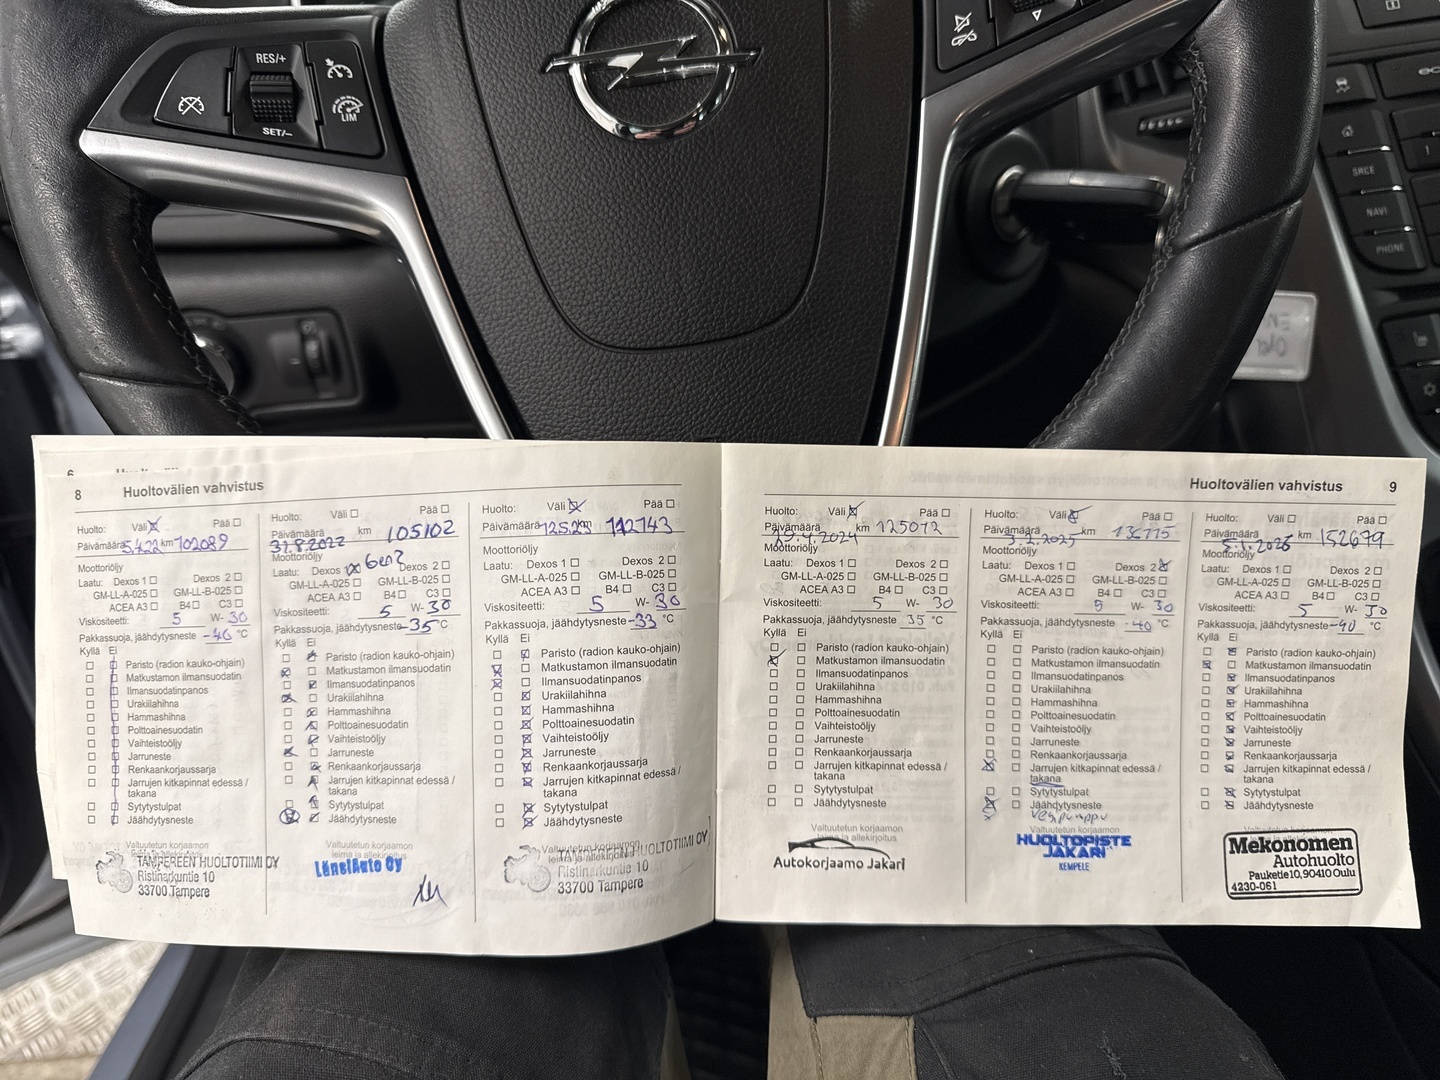 RES/+
SET/–
LIM
SRCE
NAVI
PHONE
6
8 Huoltovälien vahvistus
Huolto: Väli Pää
Päivämäärä 5.4.22 km 102089
Moottoriöljy
Laatu: Dexos 1 Dexos 2
GM-LL-A-025 GM-LL-B-025
ACEA A3 B4 C3
Viskositeetti: 5 W- 30
Pakkassuoja, jäähdytysneste -40 °C
Kyllä Ei
Paristo (radion kauko-ohjain)
Matkustamon ilmansuodatin
Ilmansuodatinpanos
Urakiilahihna
Hammashihna
Polttoainesuodatin
Vaihteistoöljy
Jarruneste
Renkaankorjaussarja
Jarrujen kitkapinnat edessä /
takana
Sytytystulpat
Jäähdytysneste
Valtuutetun korjaamon
leima ja allekirjoitus
TAMPEREEN HUOLTOTIIMI OY
Ristinarkuntie 10
33700 Tampere
Huolto: Väli Pää
Päivämäärä 31.8.2022 km 105102
Moottoriöljy
Laatu: Dexos 1 Dexos 2
GM-LL-A-025 GM-LL-B-025
ACEA A3 B4 C3
Viskositeetti: 5 W- 30
Pakkassuoja, jäähdytysneste -35 °C
Kyllä Ei
Paristo (radion kauko-ohjain)
Matkustamon ilmansuodatin
Ilmansuodatinpanos
Urakiilahihna
Hammashihna
Polttoainesuodatin
Vaihteistoöljy
Jarruneste
Renkaankorjaussarja
Jarrujen kitkapinnat edessä /
takana
Sytytystulpat
Jäähdytysneste
Valtuutetun korjaamon
leima ja allekirjoitus
LänsiAuto Oy
Huolto: Väli Pää
Päivämäärä 12.5.23 km 112743
Moottoriöljy
Laatu: Dexos 1 Dexos 2
GM-LL-A-025 GM-LL-B-025
ACEA A3 B4 C3
Viskositeetti: 5 W- 30
Pakkassuoja, jäähdytysneste -33 °C
Kyllä Ei
Paristo (radion kauko-ohjain)
Matkustamon ilmansuodatin
Ilmansuodatinpanos
Urakiilahihna
Hammashihna
Polttoainesuodatin
Vaihteistoöljy
Jarruneste
Renkaankorjaussarja
Jarrujen kitkapinnat edessä /
takana
Sytytystulpat
Jäähdytysneste
Valtuutetun korjaamon
leima ja allekirjoitus
TAMPEREEN HUOLTOTIIMI OY
Ristinarkuntie 10
33700 Tampere
Huoltovälien vahvistus 9
Huolto: Väli Pää
Päivämäärä 19.4.2024 km 125072
Moottoriöljy
Laatu: Dexos 1 Dexos 2
GM-LL-A-025 GM-LL-B-025
ACEA A3 B4 C3
Viskositeetti: 5 W- 30
Pakkassuoja, jäähdytysneste 35 °C
Kyllä Ei
Paristo (radion kauko-ohjain)
Matkustamon ilmansuodatin
Ilmansuodatinpanos
Urakiilahihna
Hammashihna
Polttoainesuodatin
Vaihteistoöljy
Jarruneste
Renkaankorjaussarja
Jarrujen kitkapinnat edessä /
takana
Sytytystulpat
Jäähdytysneste
Valtuutetun korjaamon
leima ja allekirjoitus
Autokorjaamo Jakari
Huolto: Väli Pää
Päivämäärä 2025 km
Moottoriöljy
Laatu: Dexos 1 Dexos 2
GM-LL-A-025 GM-LL-B-025
ACEA A3 B4 C3
Viskositeetti: 5 W- 30
Pakkassuoja, jäähdytysneste -40 °C
Kyllä Ei
Paristo (radion kauko-ohjain)
Matkustamon ilmansuodatin
Ilmansuodatinpanos
Urakiilahihna
Hammashihna
Polttoainesuodatin
Vaihteistoöljy
Jarruneste
Renkaankorjaussarja
Jarrujen kitkapinnat edessä /
takana
Sytytystulpat
Jäähdytysneste
Vesipumppu
Valtuutetun korjaamon
leima ja allekirjoitus
HUOLTOPISTE
JAKARI
KEMPELE
Huolto: Väli Pää
Päivämäärä 5.1.2026 km 152679
Moottoriöljy
Laatu: Dexos 1 Dexos 2
GM-LL-A-025 GM-LL-B-025
ACEA A3 B4 C3
Viskositeetti: 5 W- 30
Pakkassuoja, jäähdytysneste -40 °C
Kyllä Ei
Paristo (radion kauko-ohjain)
Matkustamon ilmansuodatin
Ilmansuodatinpanos
Urakiilahihna
Hammashihna
Polttoainesuodatin
Vaihteistoöljy
Jarruneste
Renkaankorjaussarja
Jarrujen kitkapinnat edessä /
takana
Sytytystulpat
Jäähdytysneste
Valtuutetun korjaamon
leima ja allekirjoitus
Mekonomen
Autohuolto
Pauketie 10, 90410 Oulu
4230-061